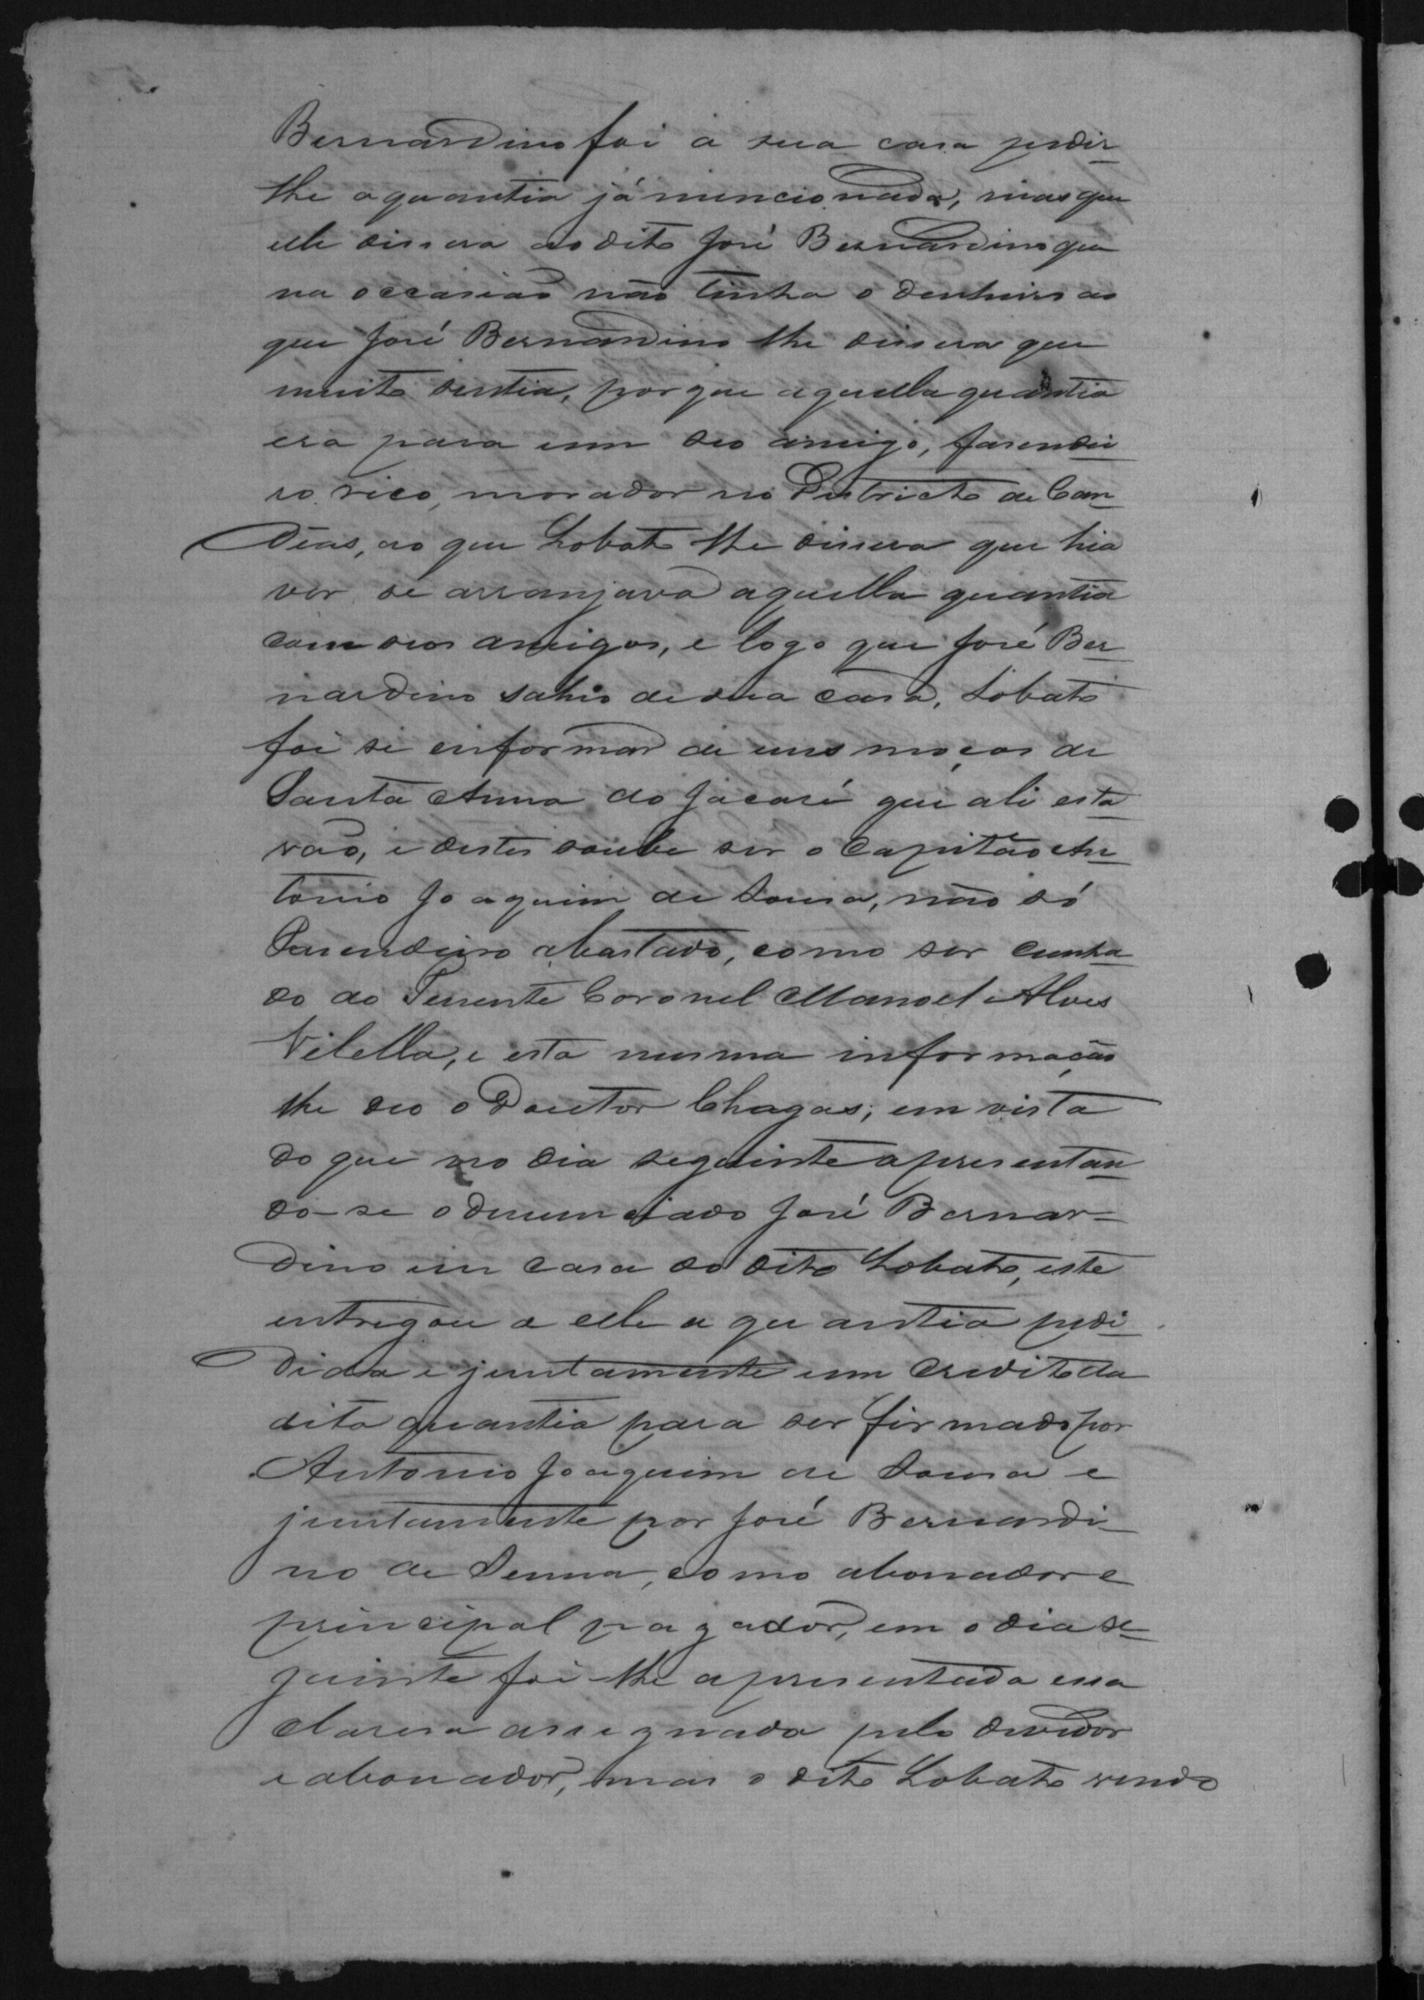 Bernardino foi á sua casa pedir-
lhe a quantia já mencionada, mas que
elle dissera ao dito José Bernardino que
na occasião não tinha o dinheiro ao
que José Bernardino lhe dissera que
muito sentia, por que aquella quantia
era para um seo amigo, fasendei-
ro rico, morador no Districto de Can-
deas, ao que Lobato lhe dissera que hia
ver se arranjava aquella quantia
com seos amigos, e logo que José Ber-
nardino sahio de sua casa, Lobato
foi si informar de uns moços de
Santa Anna do Jacaré que ali esta-
vão, e destes soube ser o Capitão An-
tonio Joaquim de Sousa, não só
Fasendeiro abastado, como ser cunha-
do do Tenente Coronel Manoel Alves
Vilella, e esta mesma informação
lhe deo o Doutor Chagas; em vista
do que no dia seguinte apresentan-
do-se o denunciado José Bernar-
dino em casa do dito Lobato, este
entregou a elle a quantia pedi-
dida e juntamente um credito da
dita quantia para ser firmado por
Antonio Joaquim de Sousa e
juntamente por José Bernardi-
no de Senna, como abonador e
principal pagador, em o dia se-
guinte foi-lhe apresentada essa
claresa assignada pelo devedor
e abonador, mas o dito Lobato vendo